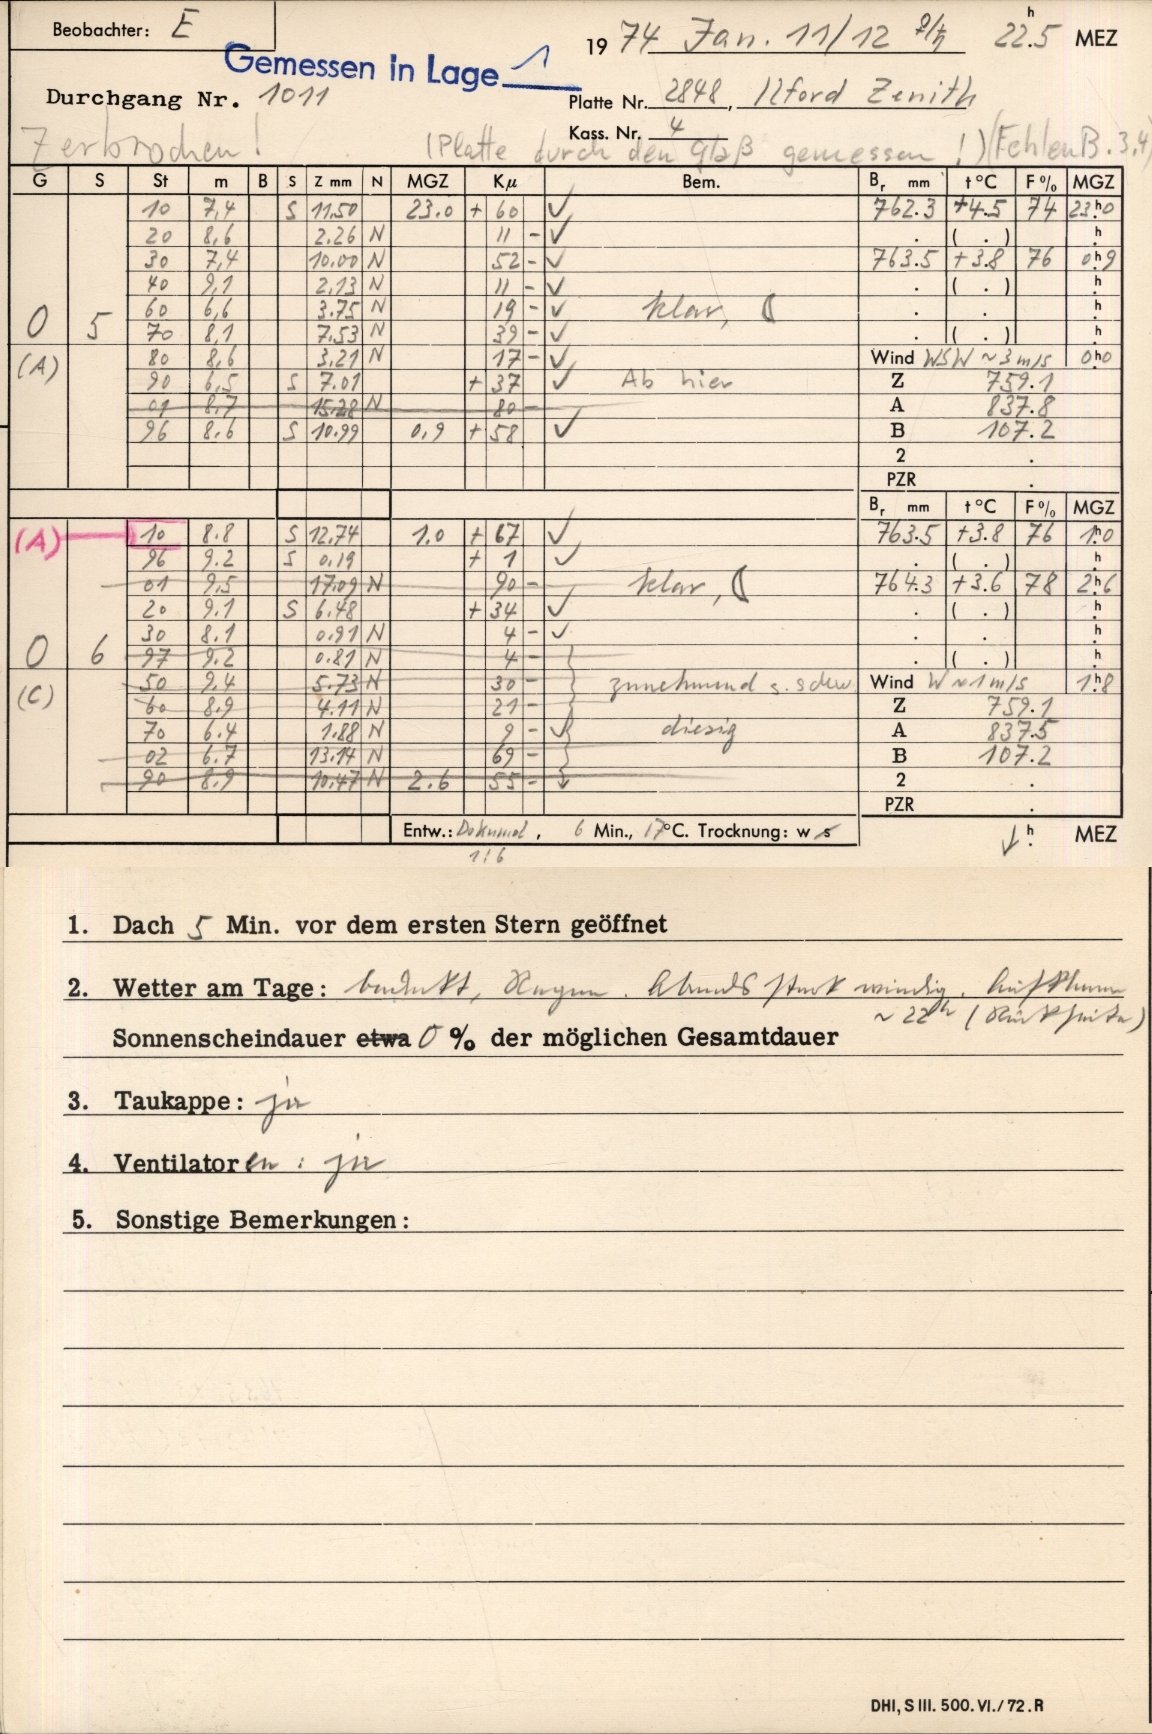 Beobachter: E
1974 Jan. 11/12 ♀/♄ 22.5 h MEZ
Gemessen in Lage 1
Durchgang Nr. 1011
Platte Nr. 2848, Ilford Zenith
Kass. Nr. 4
Zerbrochen! (Platte durch den Glas gemessen !) (Fehlen B. 3,4)
G S St m B S Z mm N MGZ Kμ Bem. Br mm t °C F % MGZ
10 7,4 S 11.50 23.0 + 60 ✓ 762.3 +4.5 74 23h0
20 8,6 2.26 N 11 - ✓ . ( . ) h
30 7,4 10.00 N 52 - ✓ 763.5 +3.8 76 0h9
40 9,1 2.13 N 11 - ✓ . ( . ) h
60 6,6 3.75 N 19 - ✓ klar, ☾ . . h
0 5 70 8,1 7.53 N 39 - ✓ ( . ) h
(A) 80 8,6 3.21 N 17 - ✓ Wind WSW ~3 m/s 0h0
90 6,5 S 7.01 + 37 ✓ Ab hier Z 759.1
01 8,7 15.28 N 80 - A 837.8
96 8.6 S 10.99 0,9 + 58 ✓ B 107.2
2 .
PZR .
Br mm t °C F % MGZ
(A) 10 8.8 S 12.74 1.0 + 67 ✓ 763.5 +3.8 76 1h0
96 9.2 S 0.19 + 1 ✓ . ( . ) h
01 9,5 17.09 N 90 - klar, ☾ 764.3 +3.6 78 2h6
20 9.1 S 6.48 + 34 ✓ . ( . ) h
30 8.1 0.91 N 4 - ✓ . . h
0 6 97 9.2 0.81 N 4 - . ( . ) h
(C) 50 9.4 5.73 N 30 - zunehmend s. schw. Wind W ~1 m/s 1h8
60 8.9 4.11 N 21 - Z 759.1
70 6.4 1.88 N 9 - ✓ diesig A 837.5
02 6.7 13.14 N 69 - B 107.2
90 8.9 10.47 N 2.6 55 - 2 .
PZR .
Entw.: Dokumol, 6 Min., 17 °C. Trocknung: w s
1:6
h MEZ
1. Dach 5 Min. vor dem ersten Stern geöffnet
2. Wetter am Tage: bedeckt, Regen. Abends stark windig. Aufklaren
~ 22h (Rückseite)
Sonnenscheindauer etwa 0 % der möglichen Gesamtdauer
3. Taukappe: ja
4. Ventilatoren: ja
5. Sonstige Bemerkungen:
DHI, S III. 500. VI./72. R